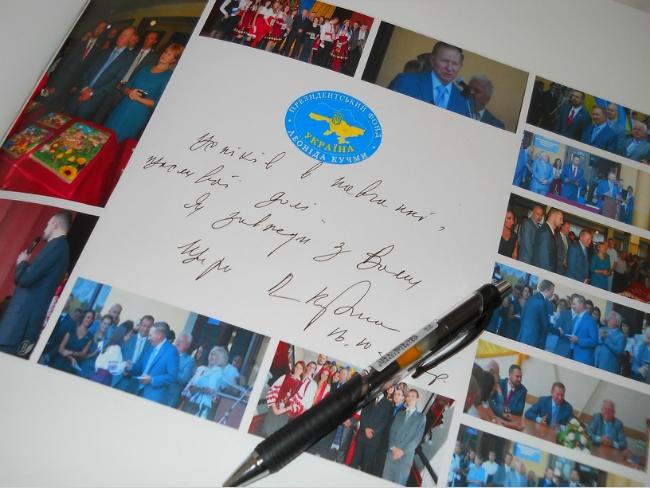 ПРЕЗИДЕНТСЬКИЙ ФОНД
УКРАЇНА
ЛЕОНІДА КУЧМИ
Успіхів в навчанні,
щасливої долі
Я завжди з Вами
Щиро Л Кучма